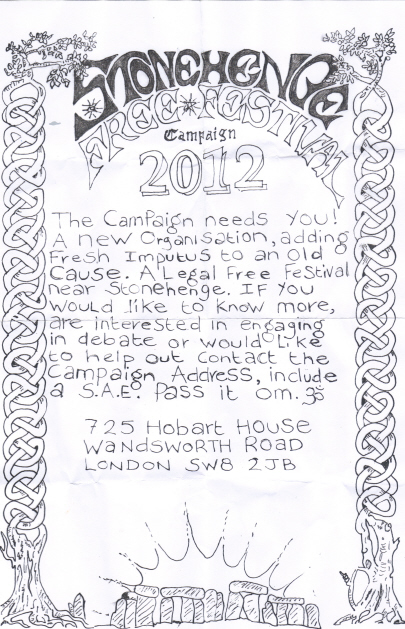 STONEHENGE
FREE FESTIVAL
Campaign
2012
The Campaign needs you!
A new Organisation, adding
Fresh Imputus to an old
Cause. A Legal Free Festival
near Stonehenge. IF you
would like to know more,
are interested in engaging
in debate or would Like
to help out contact the
Campaign Address, include
a S.A.E. Pass it om.
725 Hobart House
WANDSWORTH ROAD
LONDON SW8 2JB